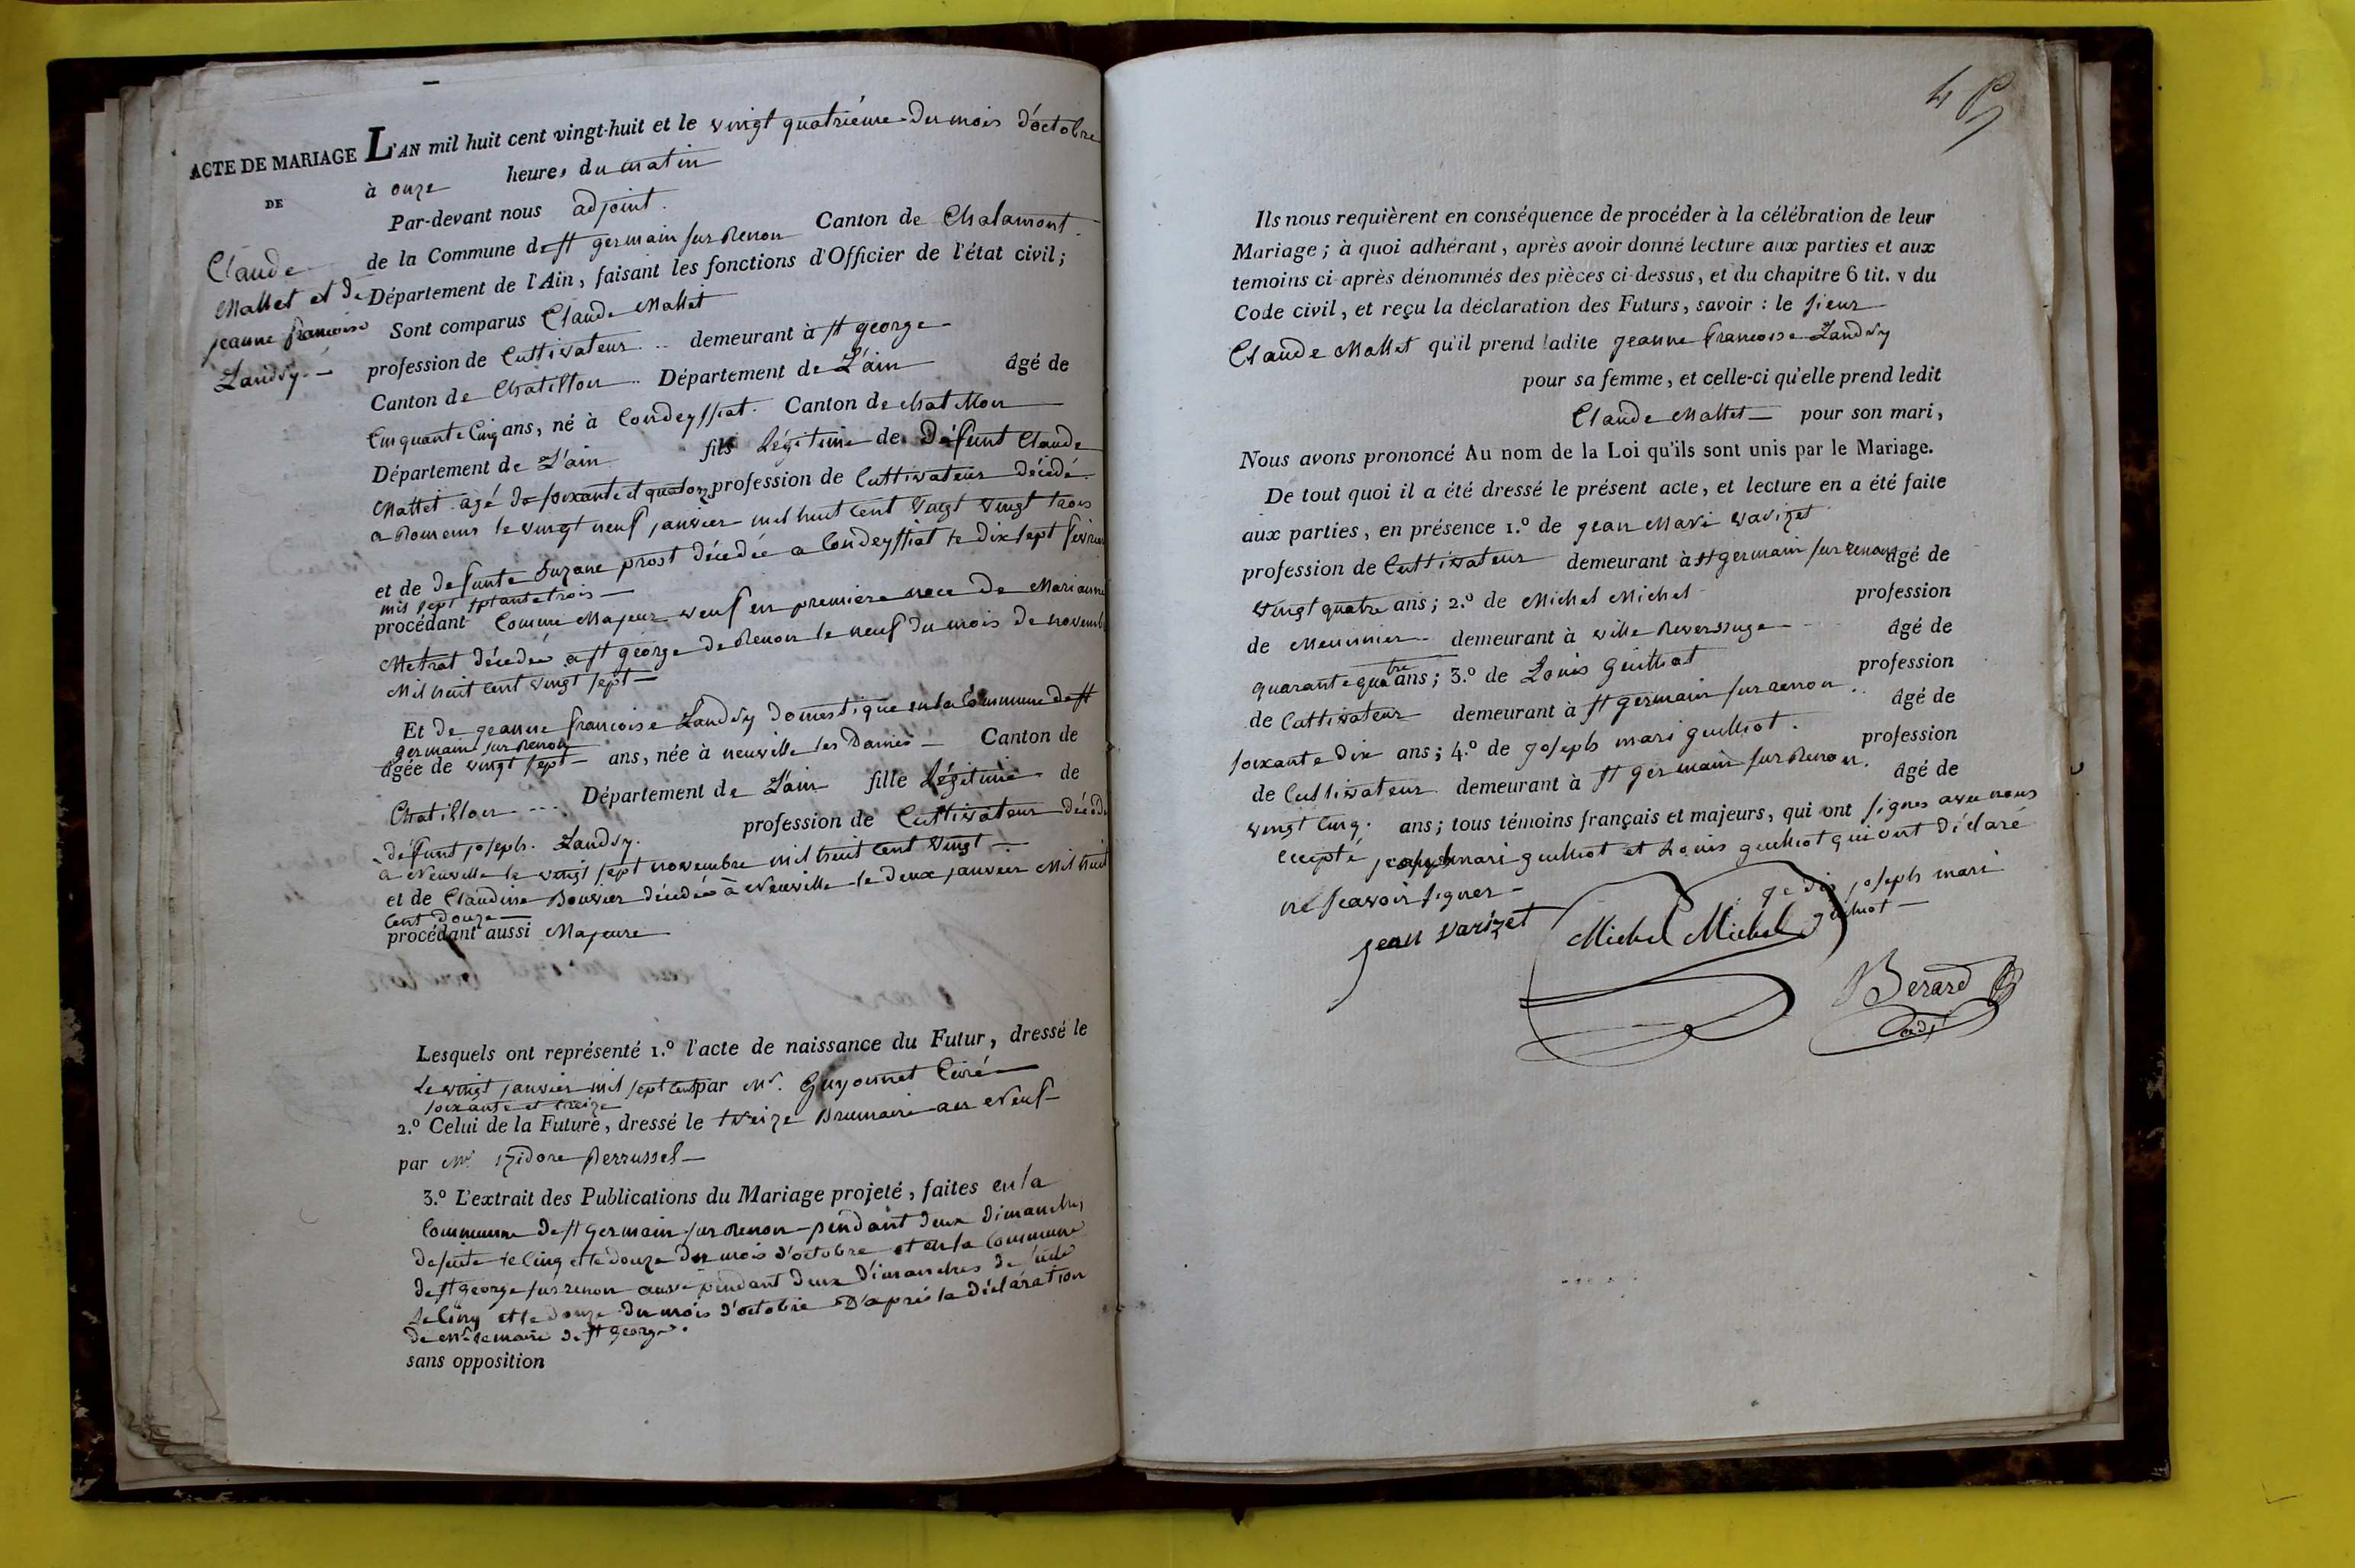 ACTE DE MARIAGE
DE
Claude
Mallet et de
jeanne francoise
Landry. —
L'AN mil huit cent vingt-huit et le vingt quatriéme du mois d'octobre
à onze heures du matin
Par-devant nous adjoint.
de la Commune de st germain sur Renon Canton de Chalamont
Département de l'Ain, faisant les fonctions d'Officier de l'état civil;
Sont comparus Claude Mallet
profession de Cultivateur .. demeurant à st george
Canton de Chatillon .. Département de L'ain âgé de
Cinquante Cinq ans, né à Condeyssiat. Canton de chatillon
Département de L'ain fils Légitime de Défunt Claude
Mallet agé de soixante et quatorze profession de Cultivateur décédé
a Romans le vingt neuf janvier mil huit cent vingt trois
et de defunte Suzane prost décedée a Condeyssiat le dix sept fevrier
mil sept septante trois —
procédant Comme Majeur veuf en premiere noce de Marianne
Metrat décedée a st george de Renon le neuf du mois de novembre
Mil huit cent vingt sept —
Et de jeanne francoise Landry domestique en la Commune de st
germain sur Renon
âgée de vingt sept — ans, née à neuville les Dames — Canton de
Chatillon --- Département de L'ain fille Légitime de
défunt joseph. Landry. profession de Cultivateur décédé
a Neuville le vingt sept novembre mil huit cent vingt —
et de Claudine Bouvier décedée à Neuville le deux janvier Mil huit
cent douze —
procédant aussi Majeure
Lesquels ont représenté 1.º l'acte de naissance du Futur, dressé le
Le vingt janvier mil sept cent par Mr. Guyonnet Curé —
soixante et treize
2.º Celui de la Future, dressé le treize Brumaire an Neuf —
par Mr izidore Perrussel —
3.º L'extrait des Publications du Mariage projeté, faites en la
Commune de st germain sur Renon pendant deux dimanches
de suite le Cinq et le douze du mois d'octobre et en la Commune
de st george sur renon aussi pendant deux dimanches de suite
Le Cinq et le douze du mois d'octobre D'après la déclaration
de Mr le maire de st george.
sans opposition
Ils nous requièrent en conséquence de procéder à la célébration de leur
Mariage; à quoi adhérant, après avoir donné lecture aux parties et aux
temoins ci-après dénommés des pièces ci-dessus, et du chapitre 6 tit. v du
Code civil, et reçu la déclaration des Futurs, savoir : le sieur
Claude Mallet qu'il prend ladite jeanne francoise Landry
pour sa femme, et celle-ci qu'elle prend ledit
Claude Mallet — pour son mari,
Nous avons prononcé Au nom de la Loi qu'ils sont unis par le Mariage.
De tout quoi il a été dressé le présent acte, et lecture en a été faite
aux parties, en présence 1.º de jean Mari varizet
profession de Cultivateur demeurant à st germain sur renon âgé de
vingt quatre ans; 2.º de Michel Michel profession
de Meunnier demeurant à ville Reverssuge âgé de
quarante quatre ans; 3.º de Louis Guilliot profession
de Cultivateur demeurant à st germain sur renon .. âgé de
soixante dix ans; 4.º de joseph mari guilliot. profession
de Cultivateur demeurant à st germain sur Renon. âgé de
vingt Cinq. ans; tous témoins français et majeurs, qui ont signes avec nous
excepté joseph mari guilliot et Louis guilliot qui ont déclaré
ne scavoir signer —
je dis joseph mari
guilliot —
jean varizet
Michel Michel
Berard
adj